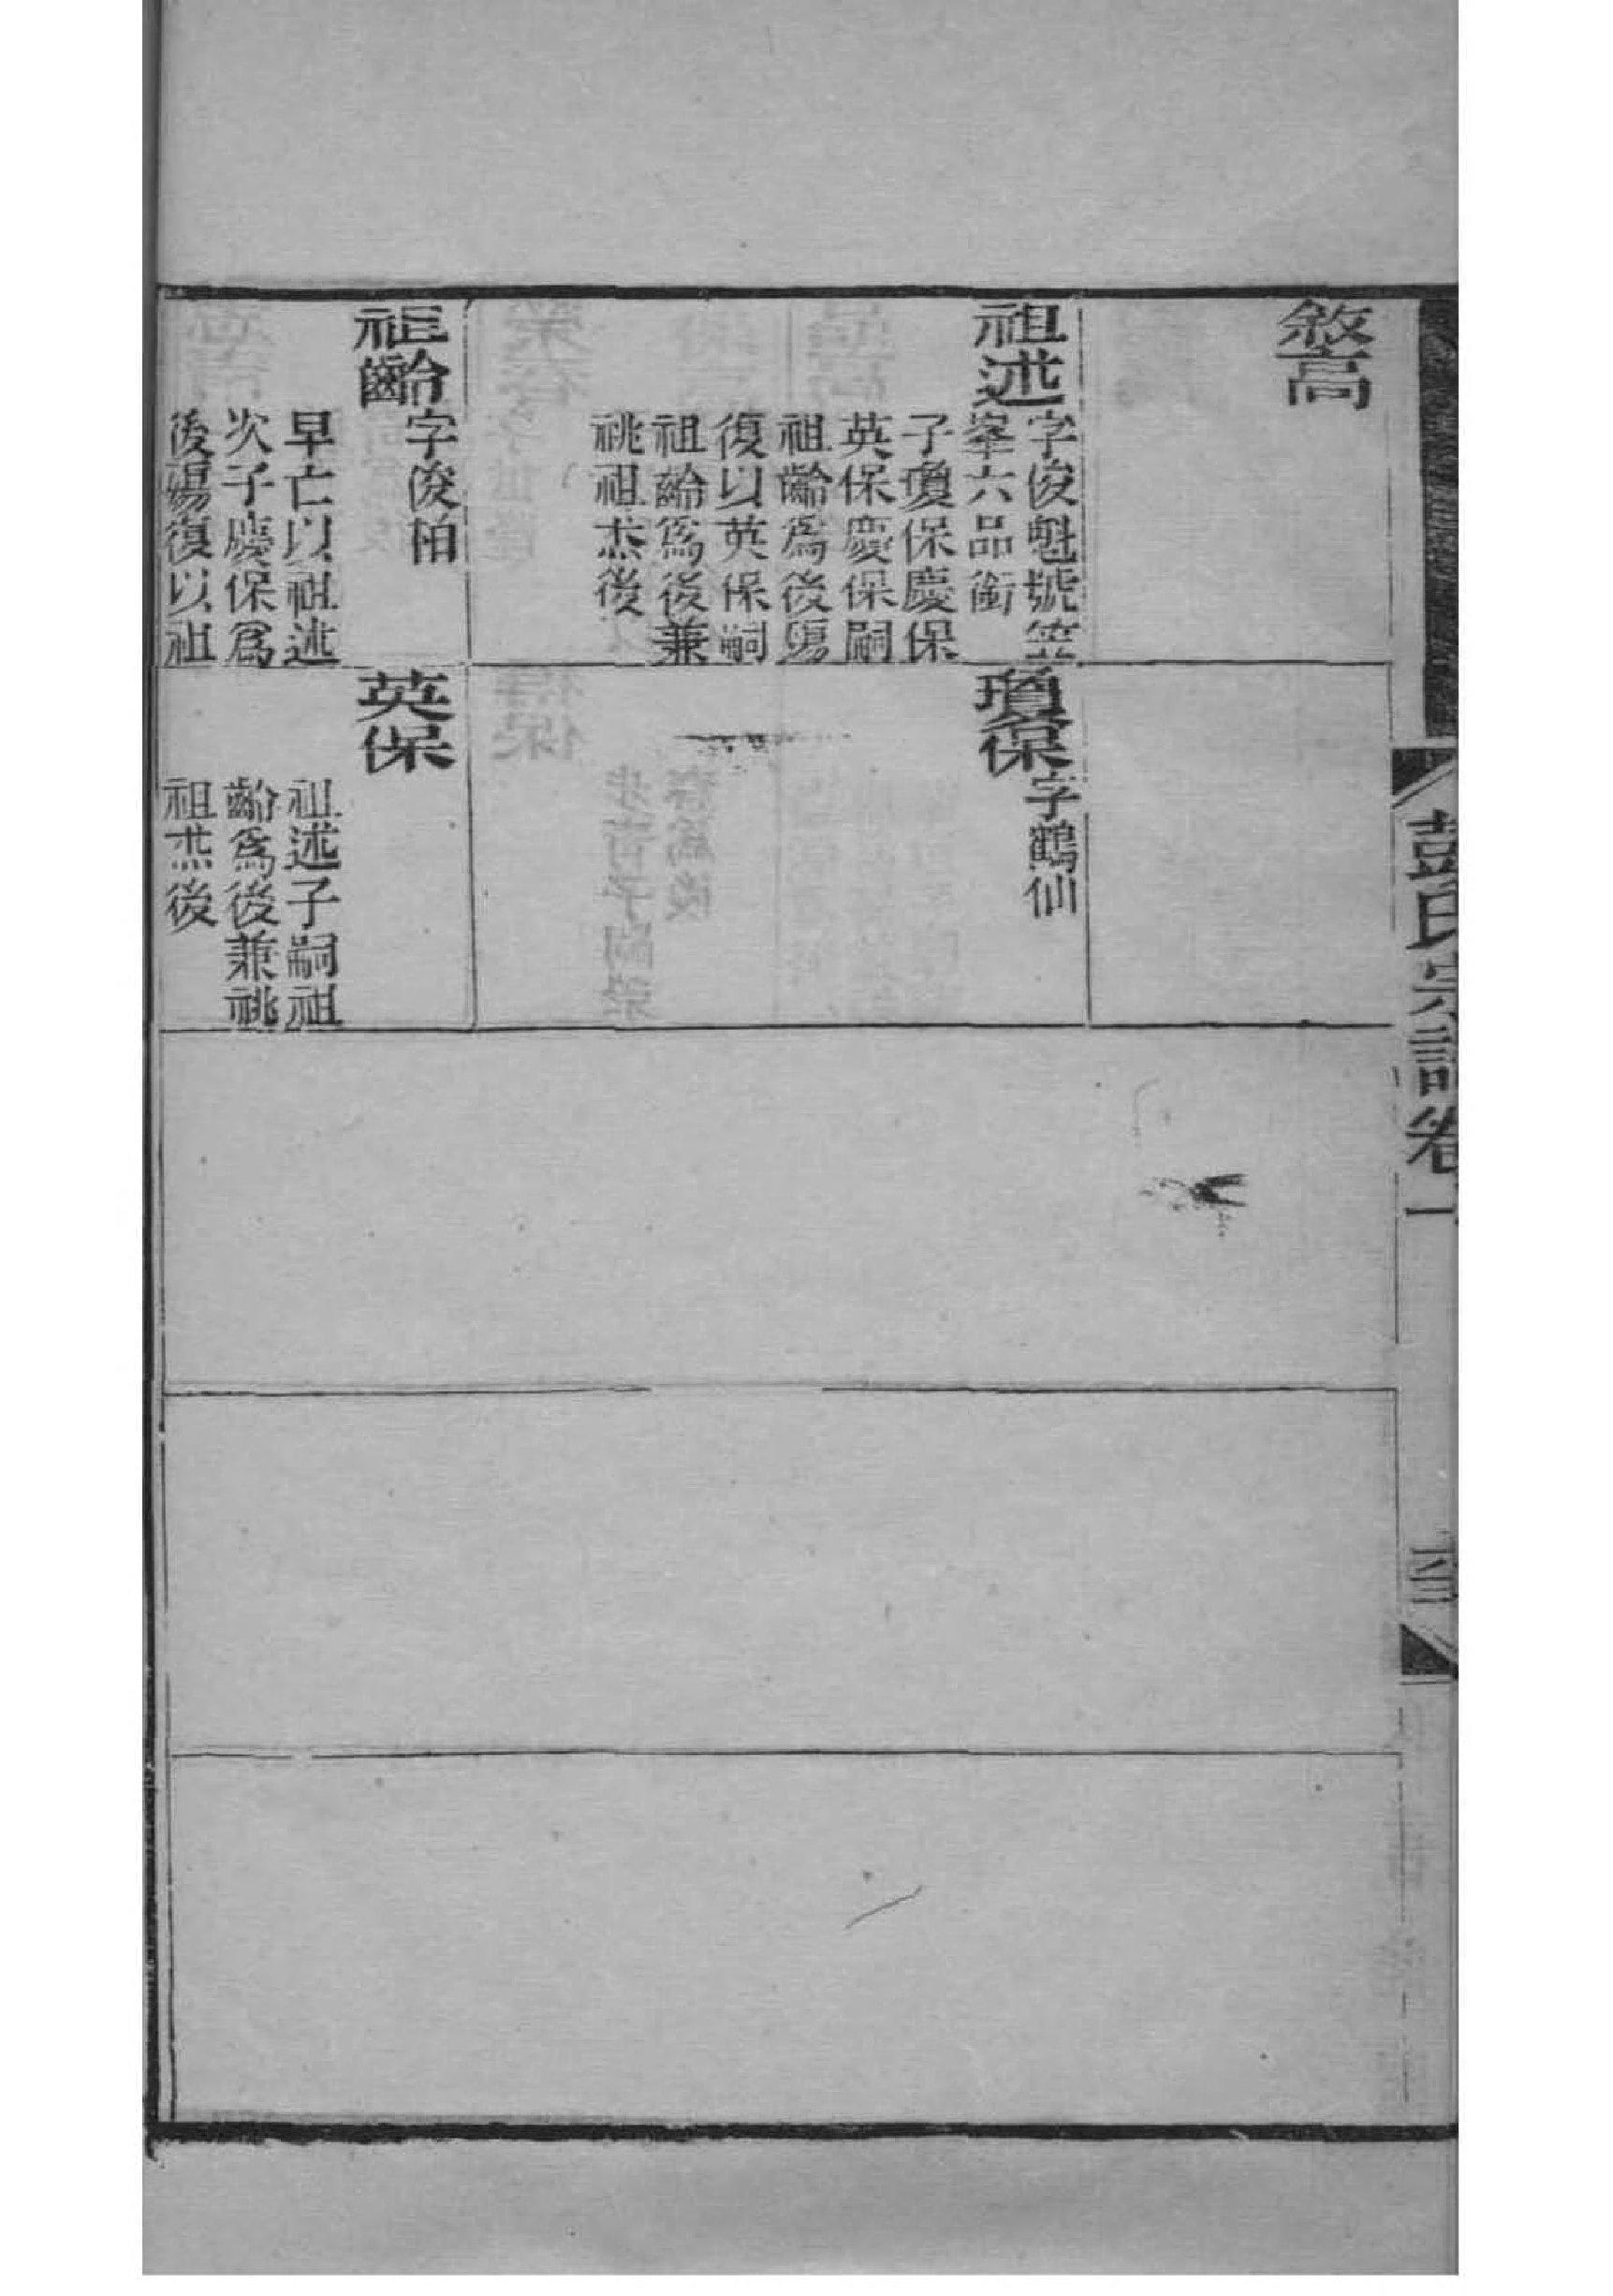 彭氏宗譜卷一
高
祖述
字俊魁號笠
峯六品銜
子瓊保慶保
英保慶保嗣
祖齡爲後殤
復以英保嗣
祖齡爲後兼
祧祖杰後
瓊保
字鶴仙
祖齡
字俊柏
早亡以祖述
次子慶保爲
後殤復以祖
英保
祖述子嗣祖
齡爲後兼祧
祖杰後